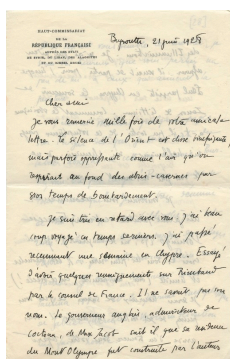 HAUT-COMMISSARIAT
DE LA
RÉPUBLIQUE FRANÇAISE
AUPRÈS DES ÉTATS
DE SYRIE, DU LIBAN, DES ALAOUITES
ET DU DJEBEL DRUZE
Beyrouth, 21 juin 1928
Cher ami
Je vous remercie mille fois de votre amicale
lettre. Le silence de l'Orient est chose magnifique,
mais parfois oppressante comme l'air qu'on
respirait au fond des abris-cavernes par
gros temps de bombardement.
Je suis très en retard avec vous. J'ai beau-
coup voyagé ces temps derniers. J'ai passé
récemment une semaine en Chypre. Essayé
d'avoir quelques renseignements sur Rimbaud
par le consul de France. Il ne savait pas son
nom. Le gouverneur anglais, admirateur de
Cocteau, de Max Jacob sait-il que sa résidence
du Mont Olympe fut construite par l'auteur